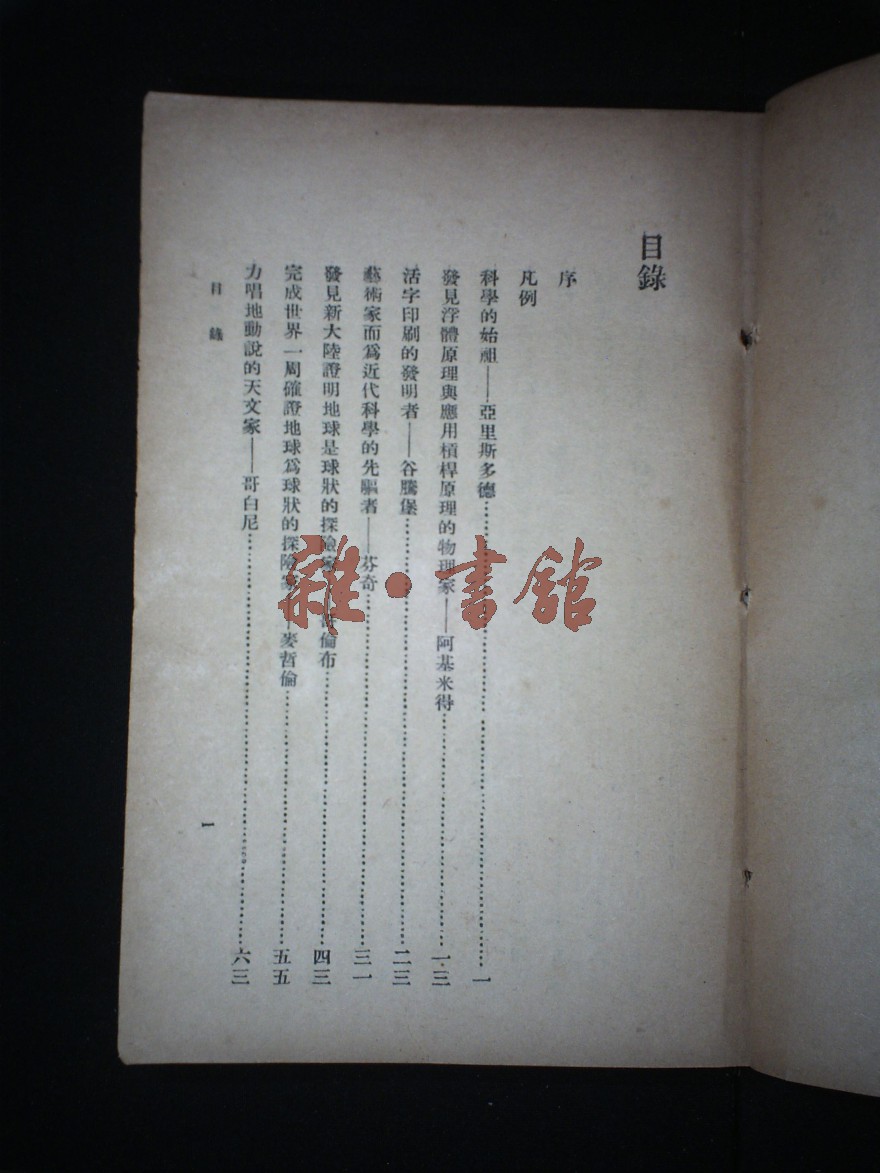 目錄
序
凡例
科學的始祖——亞里斯多德……一
發見浮體原理與應用槓桿原理的物理家——阿基米得……一三
活字印刷的發明者——谷騰堡……二三
藝術家而爲近代科學的先驅者——芬奇……三一
發見新大陸證明地球是球狀的探險家 倫布……四三
完成世界一周確證地球爲球狀的探險 —麥哲倫……五五
力唱地動說的天文家——哥白尼……六三
目錄
一
雜·書館